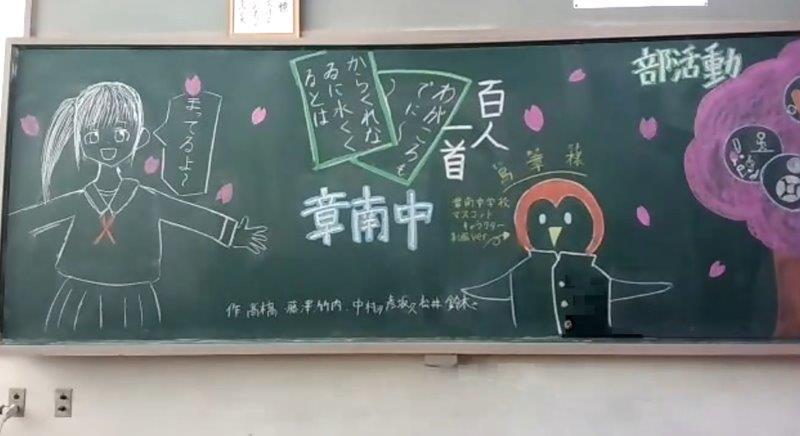 まってるよ〜
からくれな
ゐに水くく
るとは
わがころも
でに〜
百人
一首
部活動
章南中
章南中学校
マスコット
キャラクター
制服ver
作 高橋 藤澤 竹内 中村 彦坂 松井 鈴木